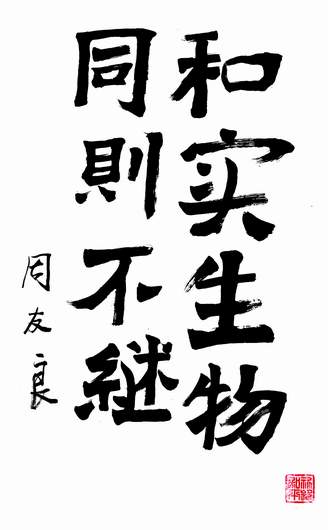 和实生物
同則不継
周友良